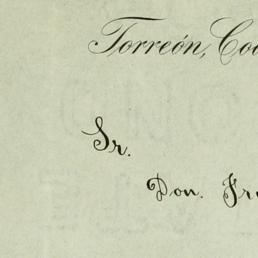 Torreón, Coa
Sr.
Don. Fra